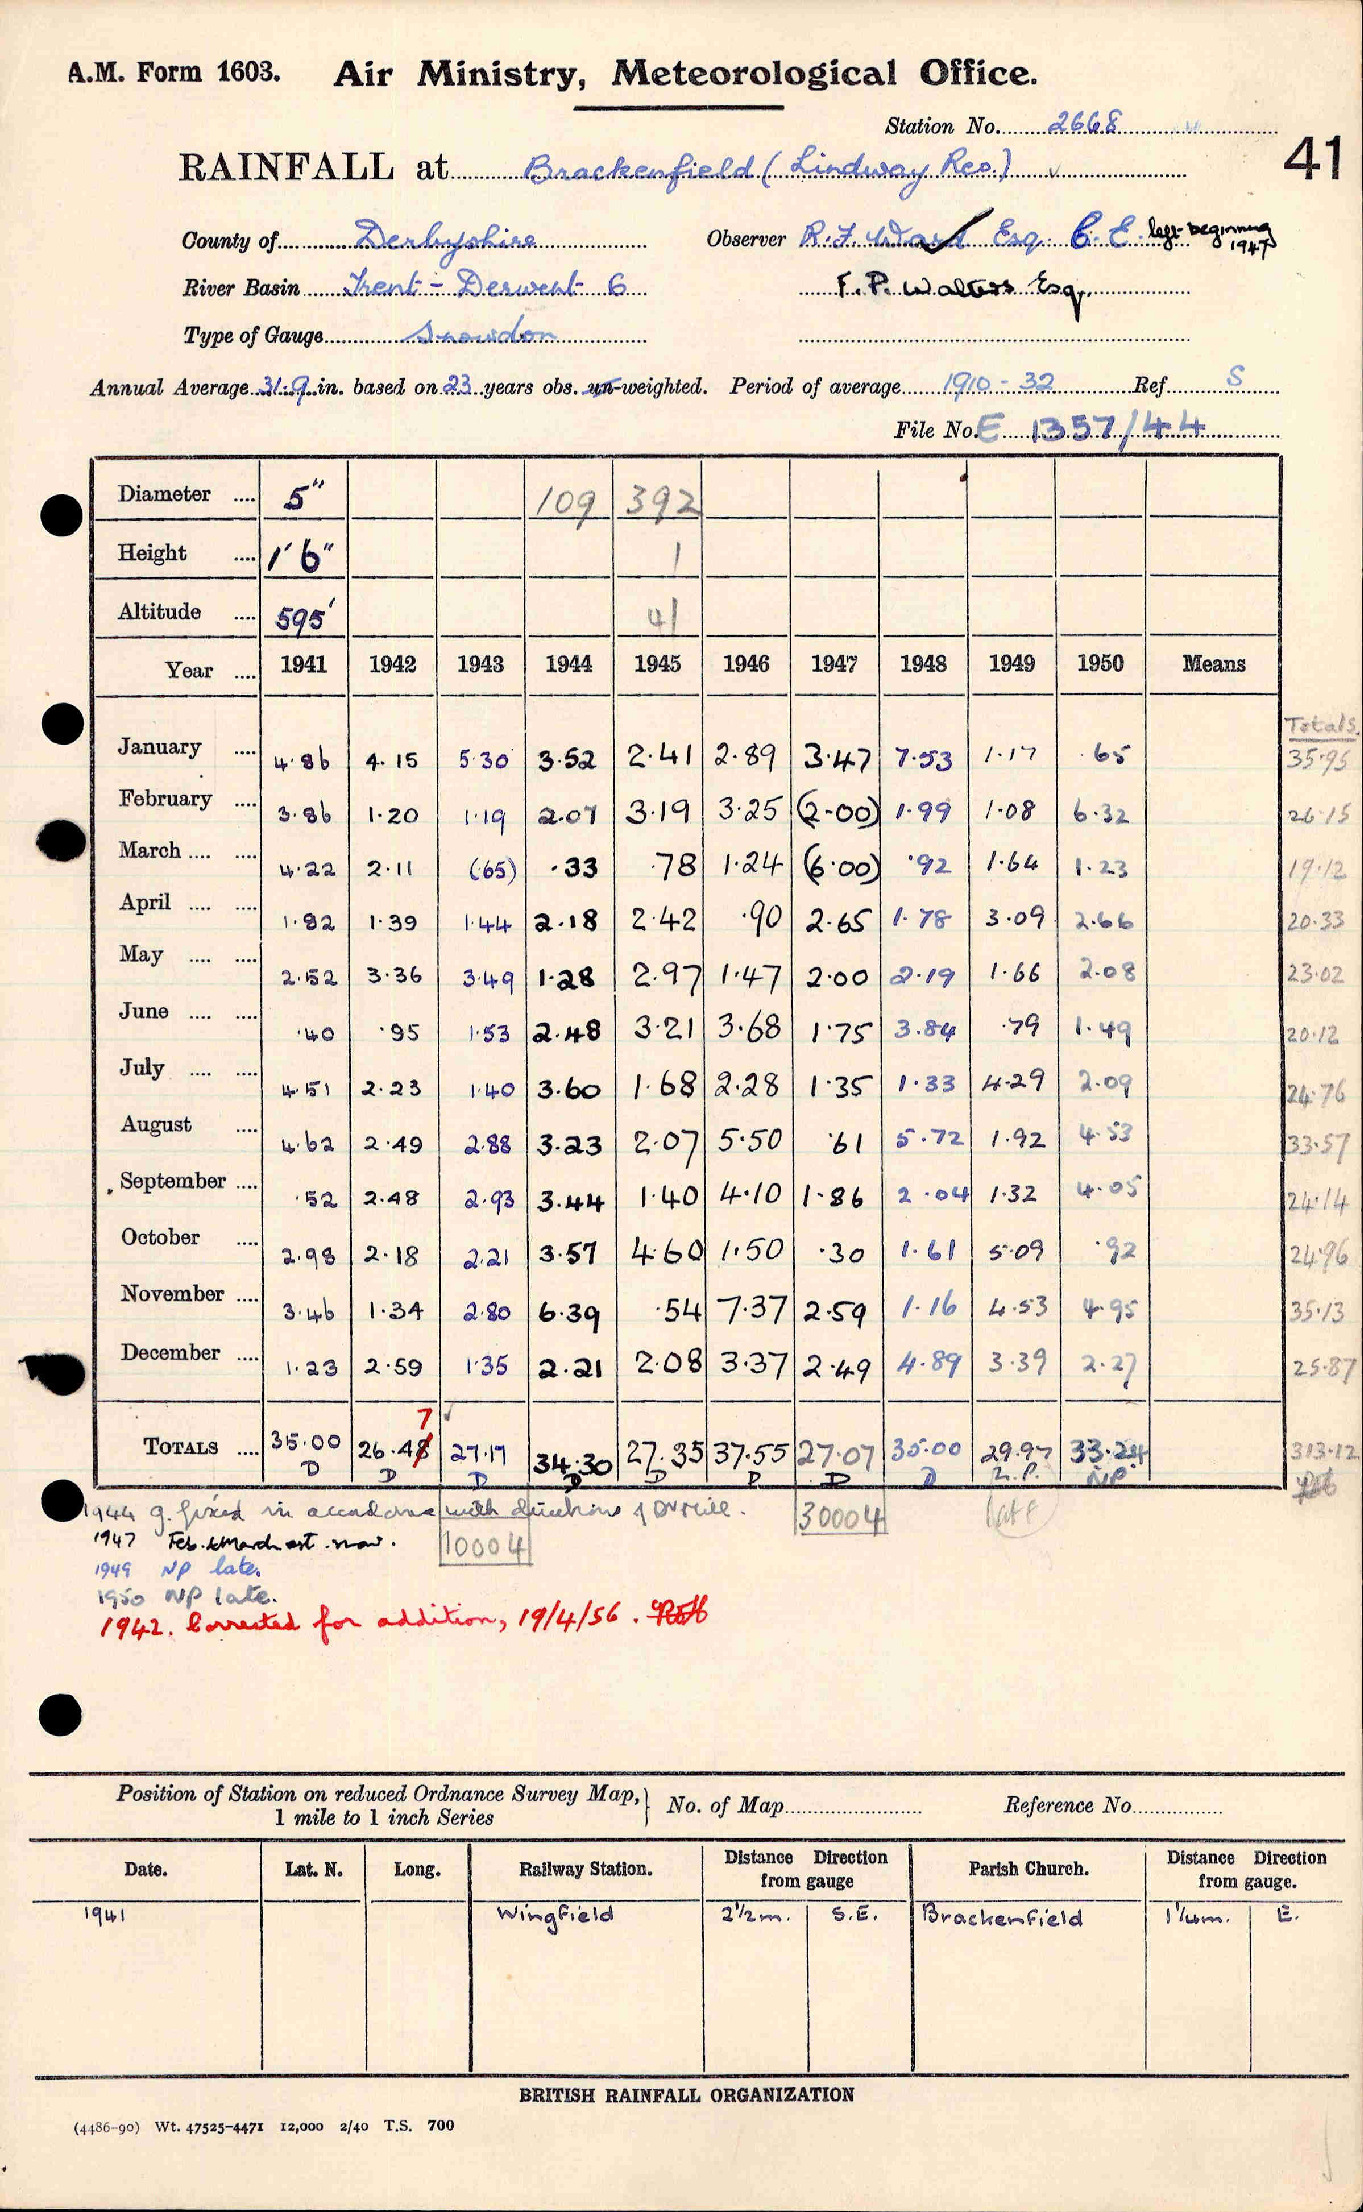 A.M. Form 1603. Air Ministry, Meteorological Office.
Station No. 2668
41
RAINFALL at Brackenfield (Lindway Res.)
County of Derbyshire Observer R.F. Ward Esq. C.E. left beginning 1947
River Basin Trent - Derwent 6 F. P. Walters Esq.
Type of Gauge Snowdon
Annual Average 31.9 in. based on 23 years obs. un-weighted. Period of average 1910 - 32 Ref S
File No. E 1357/44
Diameter .... 5" 109 392
Height .... 1' 6" 1
Altitude .... 595' 41
Year .... 1941 1942 1943 1944 1945 1946 1947 1948 1949 1950 Means
Totals
January .... 4.86 4.15 5.30 3.52 2.41 2.89 3.47 7.53 1.17 .65 35.95
February .... 3.86 1.20 1.19 2.07 3.19 3.25 (2.00) 1.99 1.08 6.32 26.15
March .... .... 4.22 2.11 (.65) .33 .78 1.24 (6.00) .92 1.64 1.23 19.12
April .... .... 1.82 1.39 1.44 2.18 2.42 .90 2.65 1.78 3.09 2.66 20.33
May .... .... 2.52 3.36 3.49 1.28 2.97 1.47 2.00 2.19 1.66 2.08 23.02
June .... .... .40 .95 1.53 2.48 3.21 3.68 1.75 3.84 .79 1.49 20.12
July .... .... 4.51 2.23 1.40 3.60 1.68 2.28 1.35 1.33 4.29 2.09 24.76
August .... 4.62 2.49 2.88 3.23 2.07 5.50 .61 5.72 1.92 4.53 33.57
September .... .52 2.48 2.93 3.44 1.40 4.10 1.86 2.04 1.32 4.05 24.14
October .... 2.98 2.18 2.21 3.57 4.60 1.50 .30 1.61 5.09 .92 24.96
November .... 3.46 1.34 2.80 6.39 .54 7.37 2.59 1.16 4.53 4.95 35.13
December .... 1.23 2.59 1.35 2.21 2.08 3.37 2.49 4.89 3.39 2.27 25.87
7
TOTALS .... 35.00 26.48 27.17 34.30 27.35 37.55 27.07 35.00 29.97 33.24 313.12
D D D D D D D D N.P. NP.
1944 g. fixed in accordance with directions of Dr Mill. 30004 late
1947 Feb. & March est. snow. 10004
1949 NP late.
1950 NP late.
1942. Corrected for addition, 19/4/56.
Position of Station on reduced Ordnance Survey Map, 1 mile to 1 inch Series No. of Map Reference No.
Date. Lat. N. Long. Railway Station. Distance Direction from gauge Parish Church. Distance Direction from gauge.
1941 Wingfield 2½m. S.E. Brackenfield 1¼m. E.
BRITISH RAINFALL ORGANIZATION
(4486-90) Wt. 47525-4471 12,000 2/40 T.S. 700